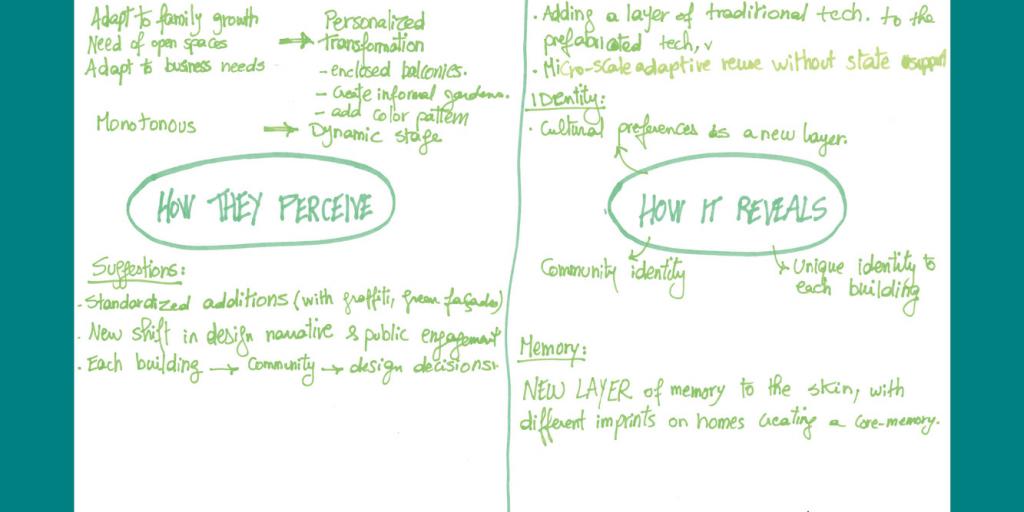 Adapt to family growth
Need of open spaces
Adapt to business needs
Personalized
Transformation
- enclosed balconies.
- create informal gardens.
- add color pattern
Monotonous
Dynamic stage
HOW THEY PERCEIVE
Suggestions:
. Standardized additions (with graffiti, green façades)
. New shift in design narrative & public engagement
. Each building → Community → design decisions.
. Adding a layer of traditional tech. to the
prefabricated tech,
. Micro-scale adaptive reuse without state support
IDentity:
. Cultural preferences as a new layer.
HOW IT REVEALS
Community identity
Unique identity to
each building
Memory:
NEW LAYER of memory to the skin, with
different imprints on homes creating a core-memory.